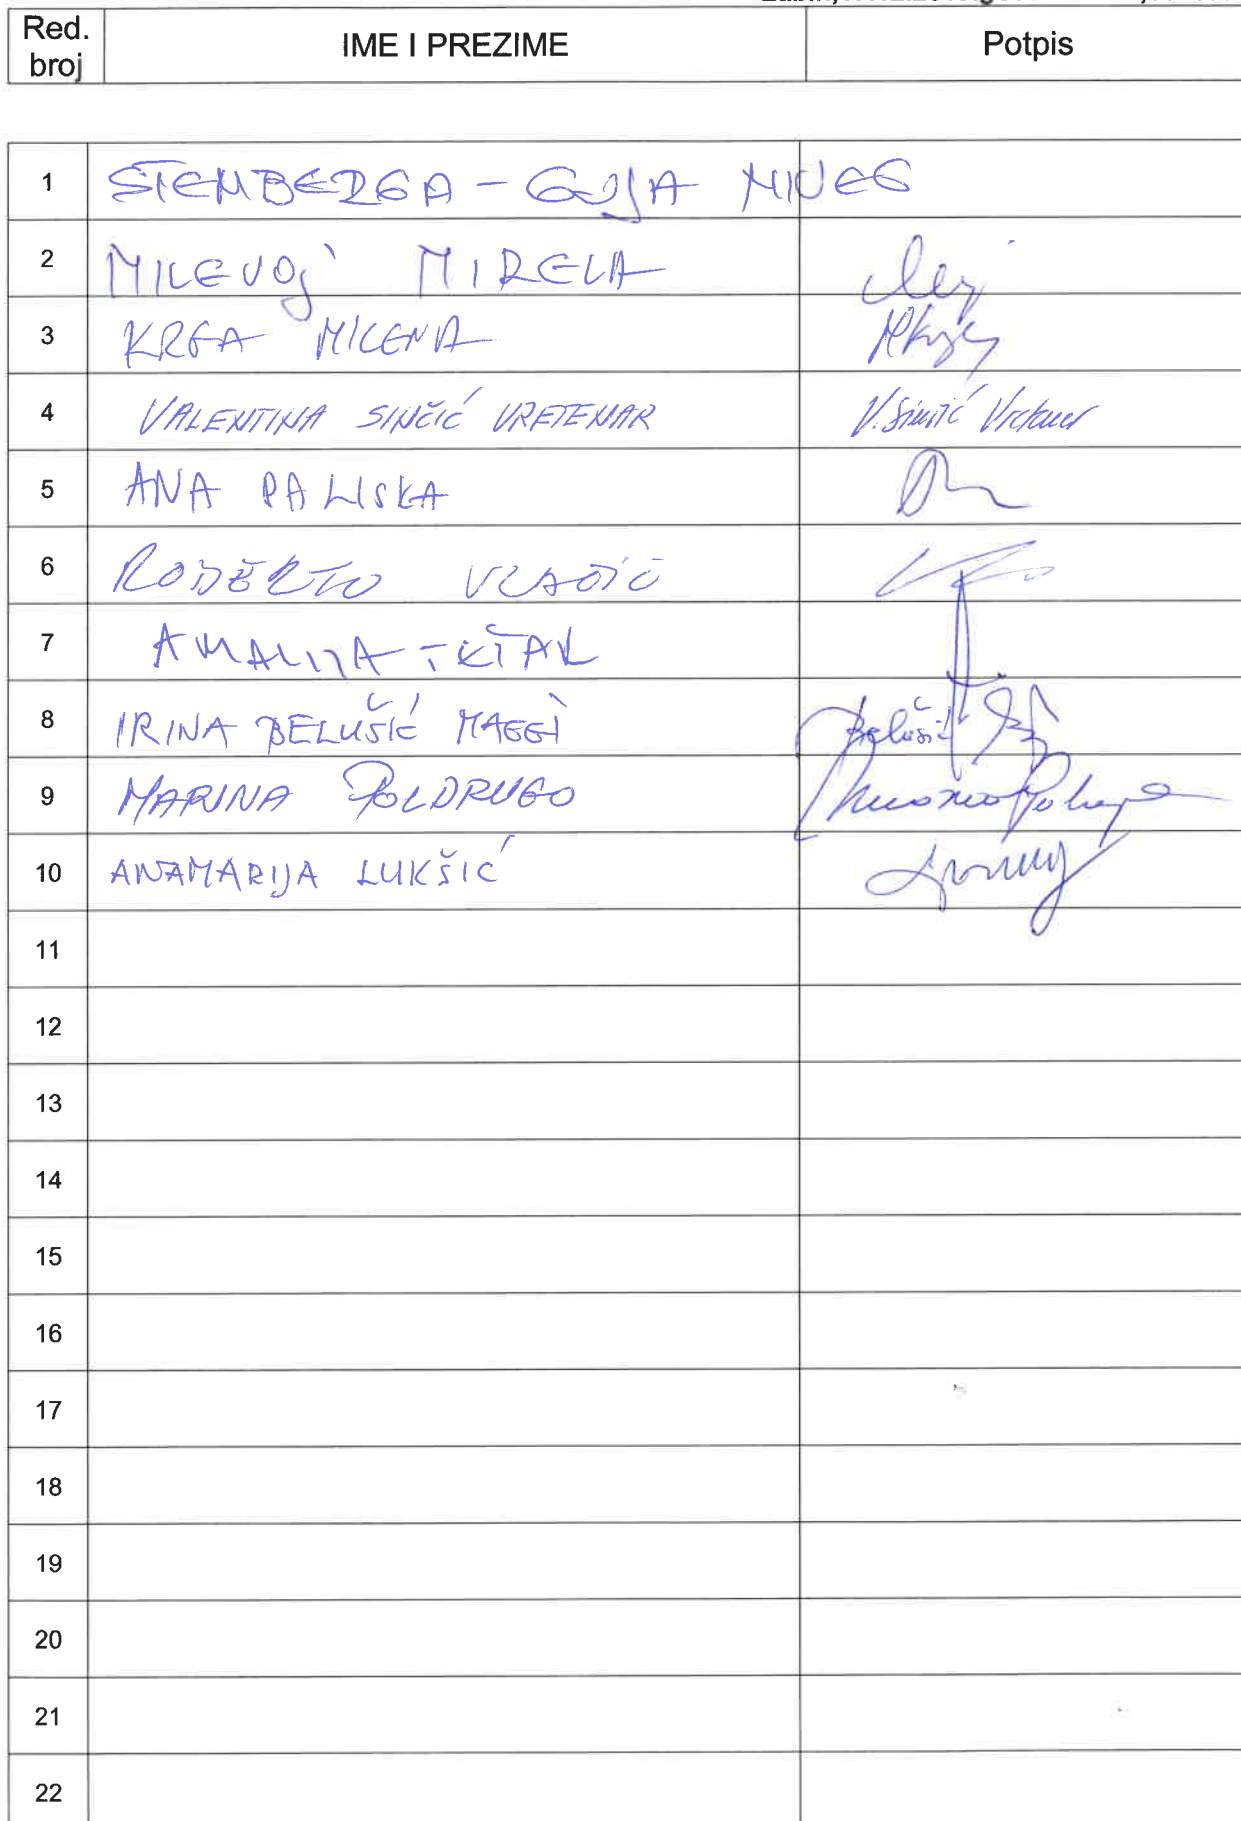 Red. broj IME I PREZIME Potpis
1 ŠTEMBERGA - GOJA
2 MILEVOJ MIRELA
3 KRGA MILENA
4 VALENTINA SINČIĆ VRETENAR V. Sinčić Vretenar
5 ANA PALISKA
6 ROBERTO VLAČIĆ
7 AMALIJA
8 IRINA BELUŠIĆ MAGGI Belušić
9 MARINA POLDRUGO
10 ANAMARIJA LUKŠIĆ
11
12
13
14
15
16
17
18
19
20
21
22